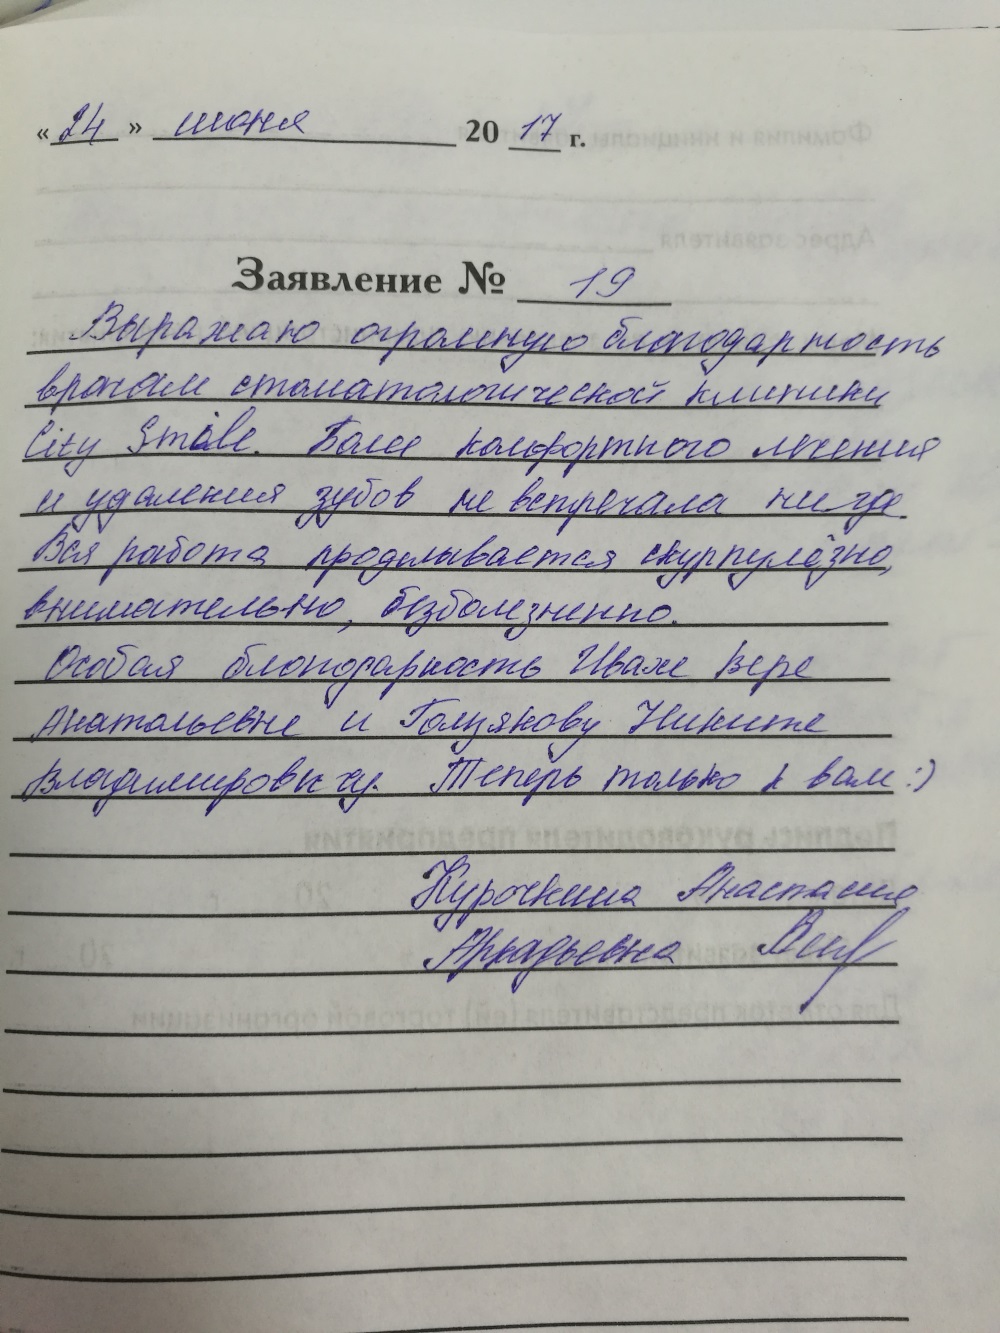 «24» июня 2017 г.
Заявление № 19
Выражаю огромную благодарность
врачам стоматологической клиники
City Smile. Более комфортного лечения
и удаления зубов не встречала нигде.
Вся работа проделывается скурпулёзно,
внимательно, безболезненно.
Особая благодарность Иваже Вере
Анатольевне и Голузякову Никите
Владимировичу. Теперь только к вам :)
Курочкина Анастасия
Аркадьевна